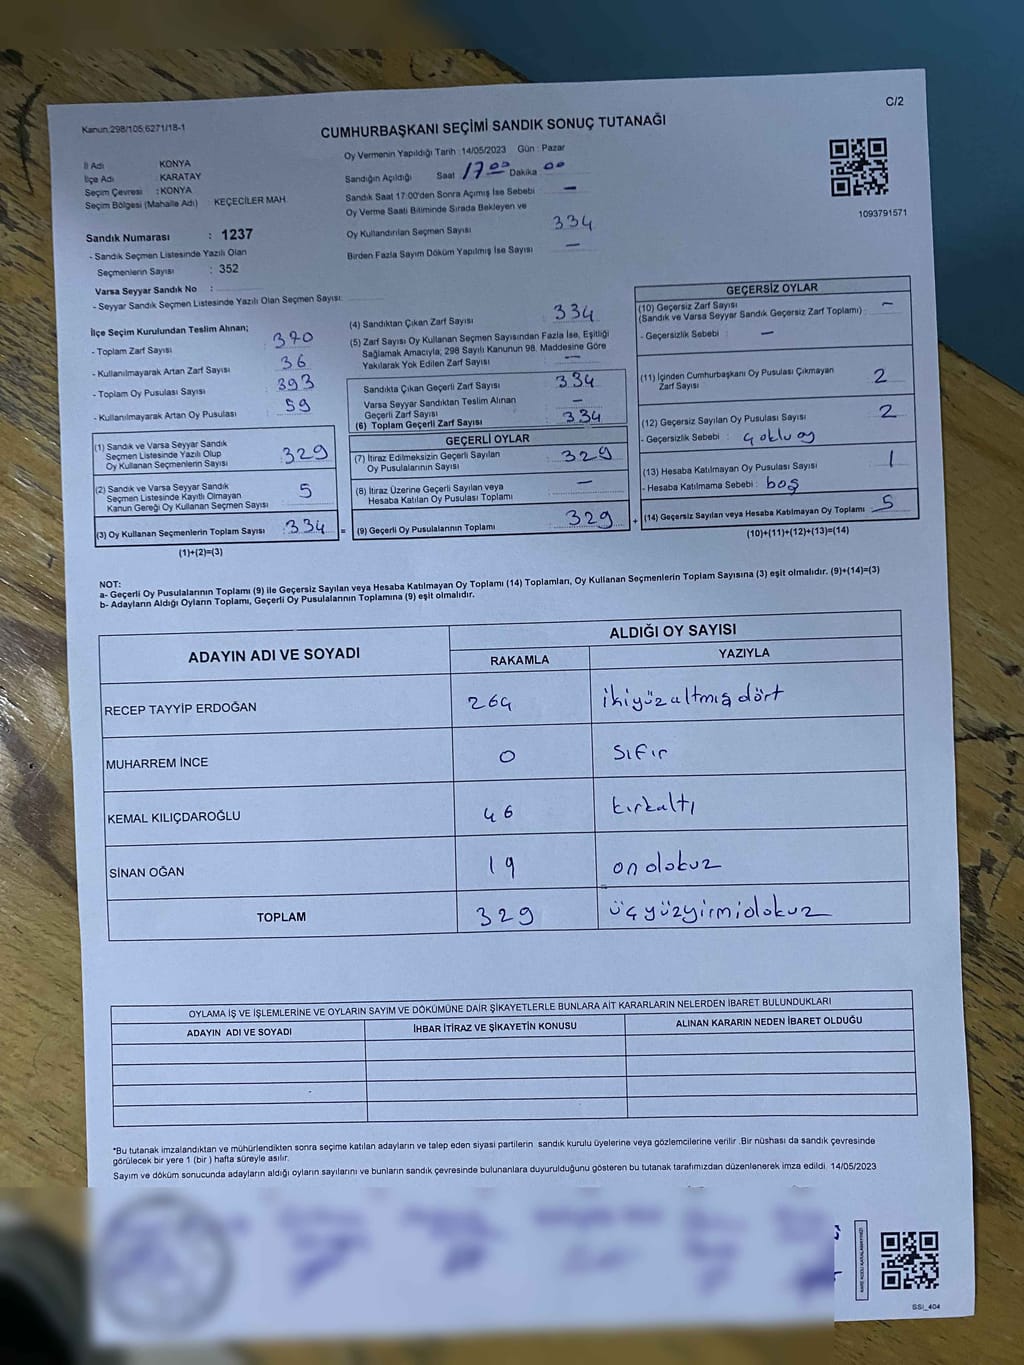 C/2
Kanun.298/105;6271/18-1
CUMHURBAŞKANI SEÇİMİ SANDIK SONUÇ TUTANAĞI
İl Adı : KONYA
İlçe Adı : KARATAY
Seçim Çevresi : KONYA
Seçim Bölgesi (Mahalle Adı) KEÇECİLER MAH.
Oy Vermenin Yapıldığı Tarih : 14/05/2023 Gün : Pazar
Sandığın Açıldığı Saat 17 00 Dakika 00
Sandık Saat 17:00'den Sonra Açımış İse Sebebi —
Oy Verme Saati Bitiminde Sırada Bekleyen ve
Oy Kullandırılan Seçmen Sayısı 334
Birden Fazla Sayım Döküm Yapılmış İse Sayısı —
1093791571
Sandık Numarası : 1237
- Sandık Seçmen Listesinde Yazılı Olan
Seçmenlerin Sayısı : 352
Varsa Seyyar Sandık No :
- Seyyar Sandık Seçmen Listesinde Yazılı Olan Seçmen Sayısı:
İlçe Seçim Kurulundan Teslim Alınan;
- Toplam Zarf Sayısı : 370
- Kullanılmayarak Artan Zarf Sayısı : 36
- Toplam Oy Pusulası Sayısı : 393
- Kullanılmayarak Artan Oy Pusulası : 59
(1) Sandık ve Varsa Seyyar Sandık
Seçmen Listesinde Yazılı Olup
Oy Kullanan Seçmenlerin Sayısı : 329
(2) Sandık ve Varsa Seyyar Sandık
Seçmen Listesinde Kayıtlı Olmayan
Kanun Gereği Oy Kullanan Seçmen Sayısı : 5
(3) Oy Kullanan Seçmenlerin Toplam Sayısı : 334 =
(1)+(2)=(3)
(4) Sandıktan Çıkan Zarf Sayısı 334
(5) Zarf Sayısı Oy Kullanan Seçmen Sayısından Fazla İse, Eşitliği
Sağlamak Amacıyla, 298 Sayılı Kanunun 98. Maddesine Göre
Yakılarak Yok Edilen Zarf Sayısı —
Sandıkta Çıkan Geçerli Zarf Sayısı : 334
Varsa Seyyar Sandıktan Teslim Alınan
Geçerli Zarf Sayısı —
(6) Toplam Geçerli Zarf Sayısı : 334
GEÇERLİ OYLAR
(7) İtiraz Edilmeksizin Geçerli Sayılan
Oy Pusulalarının Sayısı : 329
(8) İtiraz Üzerine Geçerli Sayılan veya
Hesaba Katılan Oy Pusulası Toplamı : —
(9) Geçerli Oy Pusulalarının Toplamı : 329 +
GEÇERSİZ OYLAR
(10) Geçersiz Zarf Sayısı
(Sandık ve Varsa Seyyar Sandık Geçersiz Zarf Toplamı) : —
- Geçersizlik Sebebi : —
(11) İçinden Cumhurbaşkanı Oy Pusulası Çıkmayan
Zarf Sayısı 2
(12) Geçersiz Sayılan Oy Pusulası Sayısı : 2
- Geçersizlik Sebebi : çoklu oy
(13) Hesaba Katılmayan Oy Pusulası Sayısı : 1
- Hesaba Katılmama Sebebi : boş
(14) Geçersiz Sayılan veya Hesaba Katılmayan Oy Toplamı : 5
(10)+(11)+(12)+(13)=(14)
NOT:
a- Geçerli Oy Pusulalarının Toplamı (9) ile Geçersiz Sayılan veya Hesaba Katılmayan Oy Toplamı (14) Toplamları, Oy Kullanan Seçmenlerin Toplam Sayısına (3) eşit olmalıdır. (9)+(14)=(3)
b- Adayların Aldığı Oyların Toplamı, Geçerli Oy Pusulalarının Toplamına (9) eşit olmalıdır.
ADAYIN ADI VE SOYADI ALDIĞI OY SAYISI
RAKAMLA YAZIYLA
RECEP TAYYİP ERDOĞAN 264 ikiyüzaltmışdört
MUHARREM İNCE 0 Sıfır
KEMAL KILIÇDAROĞLU 46 kırkaltı
SİNAN OĞAN 19 ondokuz
TOPLAM 329 üçyüzyirmidokuz
OYLAMA İŞ VE İŞLEMLERİNE VE OYLARIN SAYIM VE DÖKÜMÜNE DAİR ŞİKAYETLERLE BUNLARA AİT KARARLARIN NELERDEN İBARET BULUNDUKLARI
ADAYIN ADI VE SOYADI İHBAR İTİRAZ VE ŞİKAYETİN KONUSU ALINAN KARARIN NEDEN İBARET OLDUĞU
*Bu tutanak imzalandıktan ve mühürlendikten sonra seçime katılan adayların ve talep eden siyasi partilerin sandık kurulu üyelerine veya gözlemcilerine verilir .Bir nüshası da sandık çevresinde
görülecek bir yere 1 (bir ) hafta süreyle asılır.
Sayım ve döküm sonucunda adayların aldığı oyların sayılarını ve bunların sandık çevresinde bulunanlara duyurulduğunu gösteren bu tutanak tarafımızdan düzenlenerek imza edildi. 14/05/2023
SSI_404